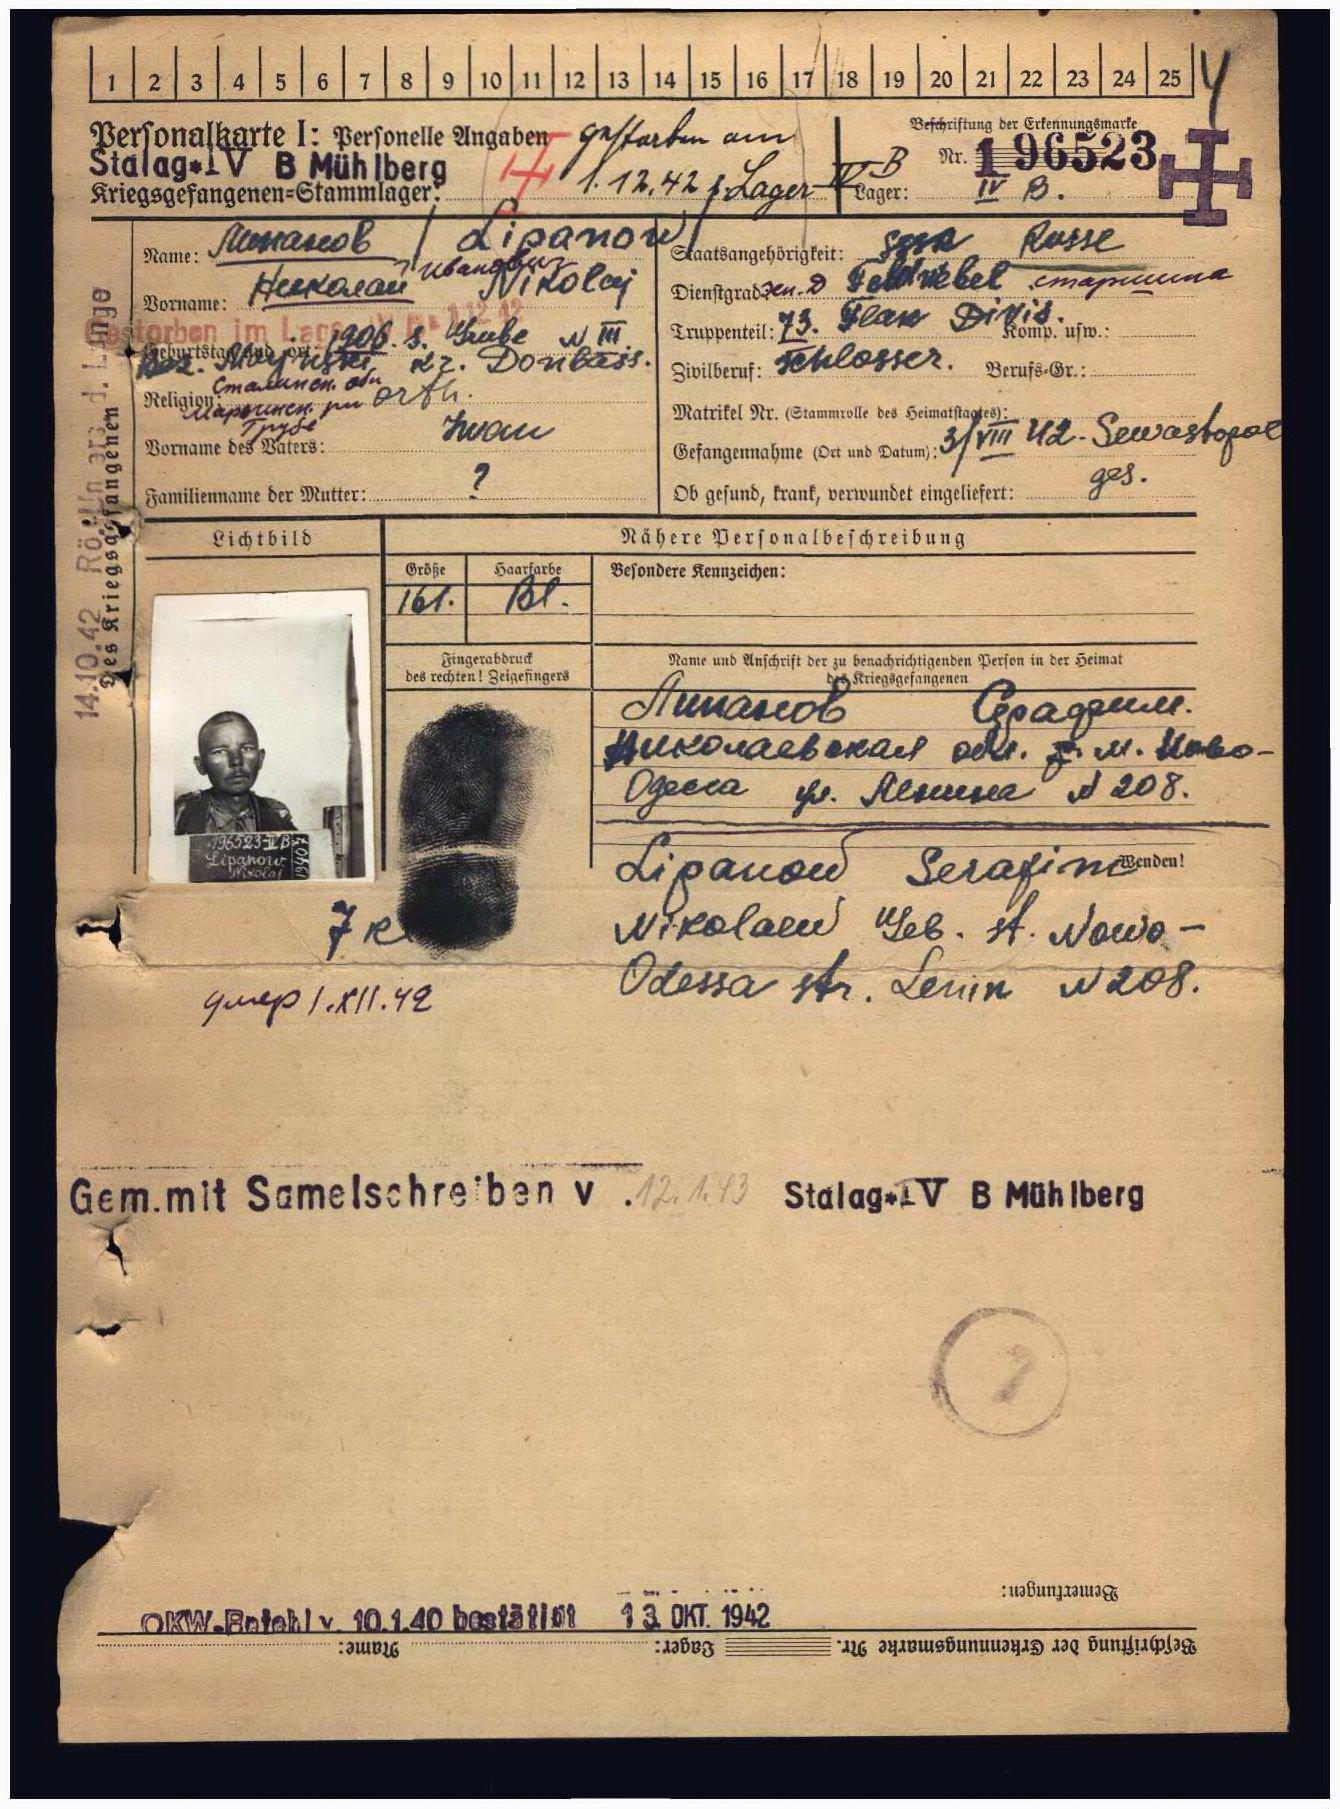 1 2 3 4 5 6 7 8 9 10 11 12 13 14 15 16 17 18 19 20 21 22 23 24 25
Personalkarte I: Personelle Angaben
gestorben am
1.12.42 Lager IV B
Stalag*IV B Mühlberg
Kriegsgefangenen=Stammlager:
Beschriftung der Erkennungsmarke
Nr. 196523
Lager: IV B.
Name: Липанов / Lipanow
Иванович
Vorname: Николай Nikolaj
Gestorben im Lager 1.12.42
Geburtstag und =ort: 1906. s. Grube N III
Bez. Marjinski Kr. Donbass.
Сталинск. обл
Religion: orth.
Марьинск. рн
Трубе
Vorname des Vaters: Iwan
Familienname der Mutter: ?
Staatsangehörigkeit: SSSR Russe
Dienstgrad: Feldwebel старшина
Truppenteil: 73. Flak Divis. Komp. usw.:
Zivilberuf: Schlosser. Berufs=Gr.:
Matrikel Nr. (Stammrolle des Heimatstaates):
Gefangennahme (Ort und Datum): 3/VIII 42. Sewastopol
Ob gesund, krank, verwundet eingeliefert: ges.
14.10.42 Rö.
Des Kriegsgefangenen
Lichtbild
Nähere Personalbeschreibung
Größe Haarfarbe Besondere Kennzeichen:
161. Bl.
Fingerabdruck
des rechten! Zeigefingers
Name und Anschrift der zu benachrichtigenden Person in der Heimat
des Kriegsgefangenen
Липанов Серафим.
Николаевская обл. м. Ново-
Одесса ул. Ленина N 208.
196523-IV B
Lipanow
Nikolaj
1907
Wenden!
Lipanow Serafim
Nikolaew Geb. st. Nowo-
Odessa str. Lenin N 208.
7 кл
умер 1.XII.42
Gem.mit Samelschreiben v .12.1.43 Stalag*IV B Mühlberg
Bemerkungen:
OKW-Befehl v. 10.1.40 bestätigt 13. OKT. 1942
Beschriftung der Erkennungsmarke Nr. Lager: Name: